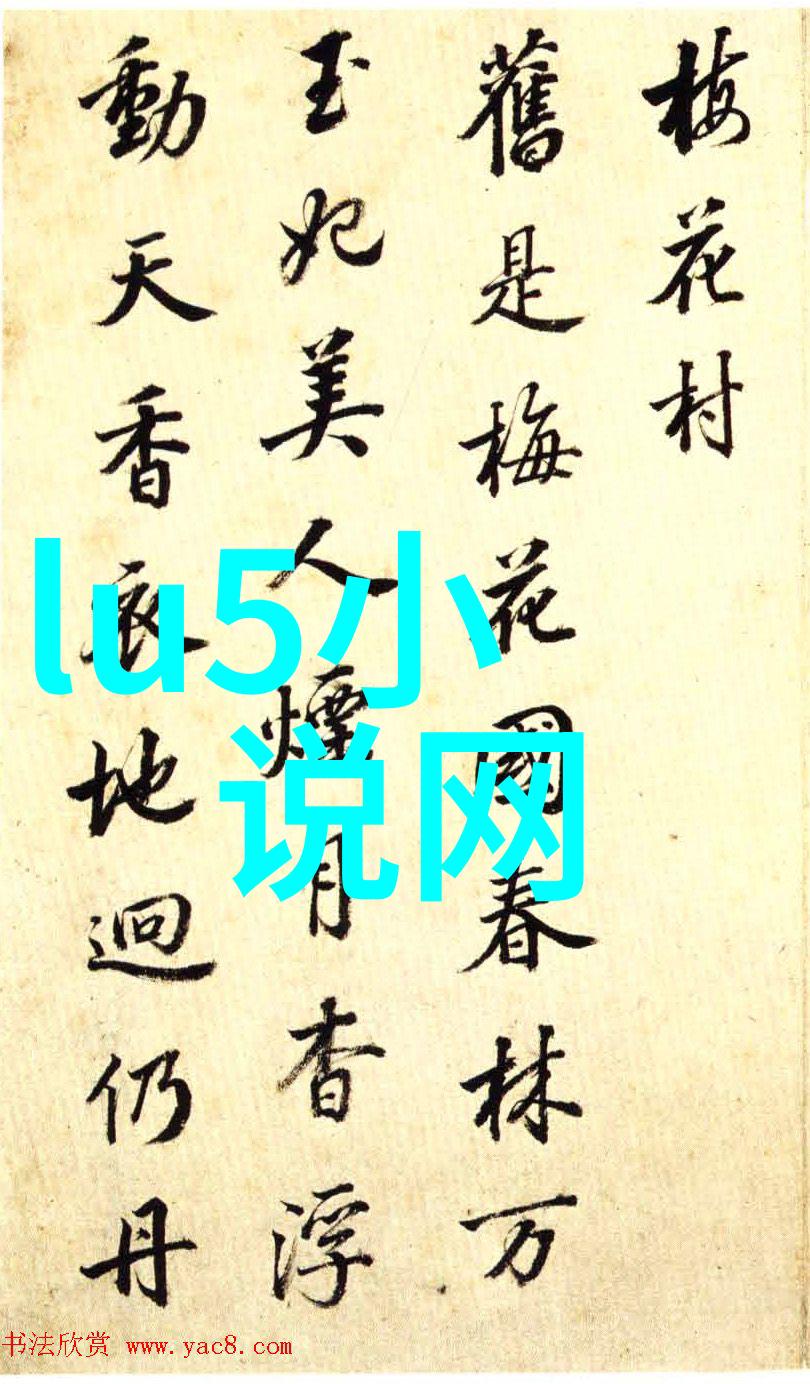 梅花村
舊是梅花國春林万
玉妃美人煙月杳浮
動天香地迥仍丹
lu5小
说网
书法欣赏 www.yac8.com